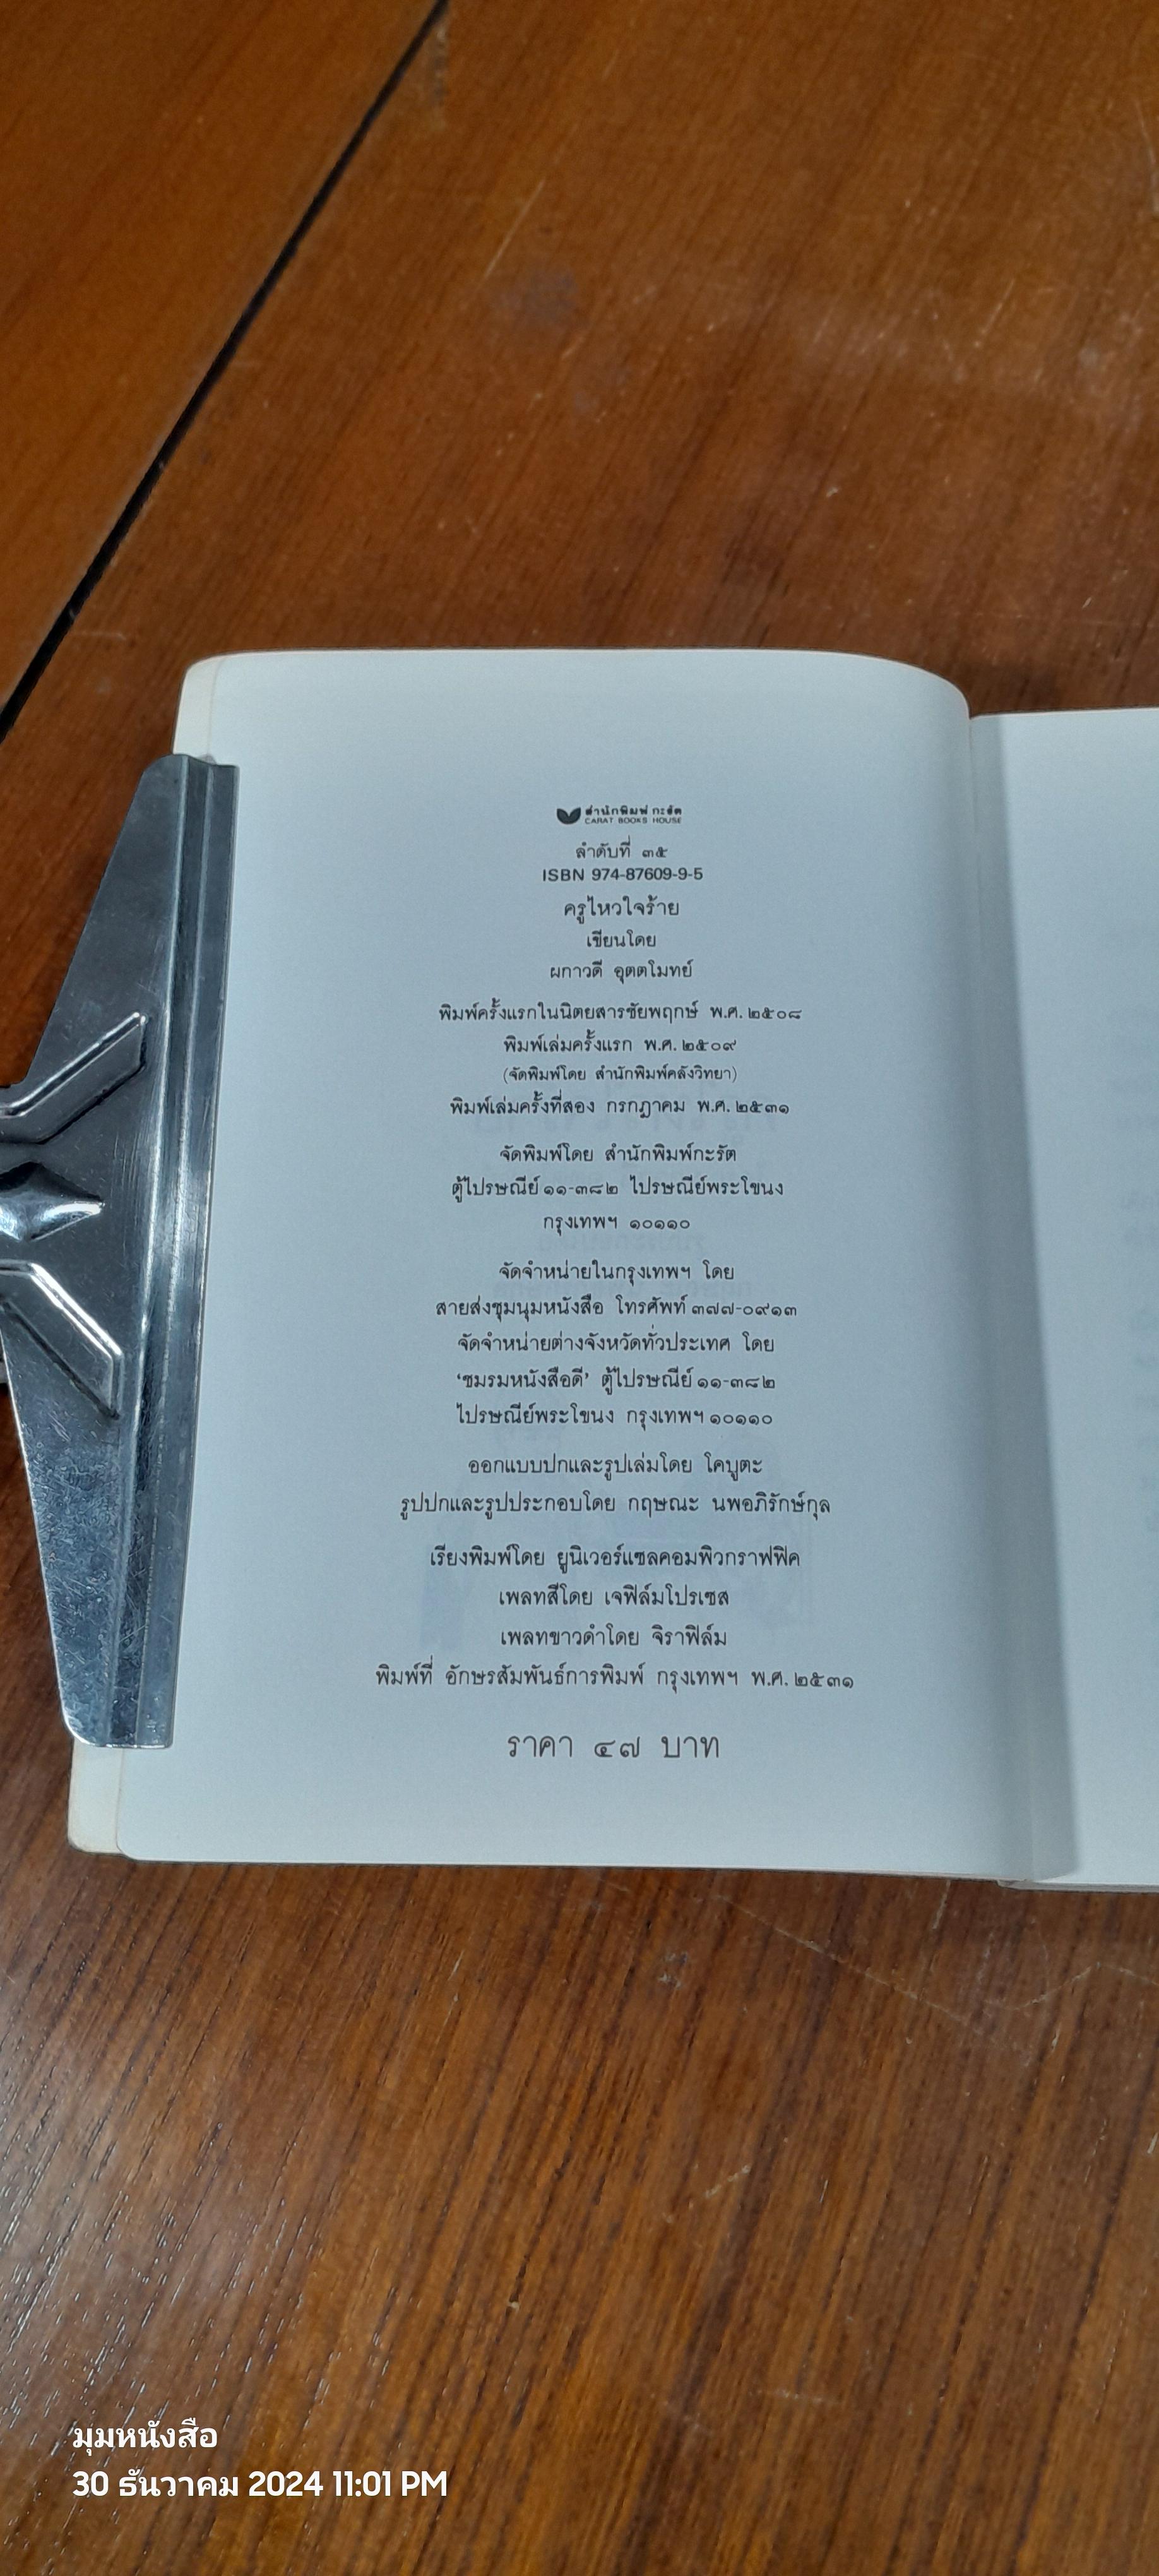 สำนักพิมพ์ กะรัต
CARAT BOOKS HOUSE
ลำดับที่ ๓๕
ISBN 974-87609-9-5
ครูไหวใจร้าย
เขียนโดย
ผกาวดี อุตตโมทย์
พิมพ์ครั้งแรกในนิตยสารชัยพฤกษ์ พ.ศ. ๒๕๐๘
พิมพ์เล่มครั้งแรก พ.ศ. ๒๕๐๙
(จัดพิมพ์โดย สำนักพิมพ์คลังวิทยา)
พิมพ์เล่มครั้งที่สอง กรกฎาคม พ.ศ. ๒๕๓๑
จัดพิมพ์โดย สำนักพิมพ์กะรัต
ตู้ไปรษณีย์ ๑๑-๓๘๒ ไปรษณีย์พระโขนง
กรุงเทพฯ ๑๐๑๑๐
จัดจำหน่ายในกรุงเทพฯ โดย
สายส่งชุมนุมหนังสือ โทรศัพท์ ๓๗๗-๐๙๑๓
จัดจำหน่ายต่างจังหวัดทั่วประเทศ โดย
‘ชมรมหนังสือดี’ ตู้ไปรษณีย์ ๑๑-๓๘๒
ไปรษณีย์พระโขนง กรุงเทพฯ ๑๐๑๑๐
ออกแบบปกและรูปเล่มโดย โคบูตะ
รูปปกและรูปประกอบโดย กฤษณะ นพอภิรักษ์กุล
เรียงพิมพ์โดย ยูนิเวอร์แซลคอมพิวกราฟฟิค
เพลทสีโดย เจฟิล์มโปรเซส
เพลทขาวดำโดย จิราฟิล์ม
พิมพ์ที่ อักษรสัมพันธ์การพิมพ์ กรุงเทพฯ พ.ศ. ๒๕๓๑
ราคา ๔๗ บาท
มุมหนังสือ
30 ธันวาคม 2024 11:01 PM